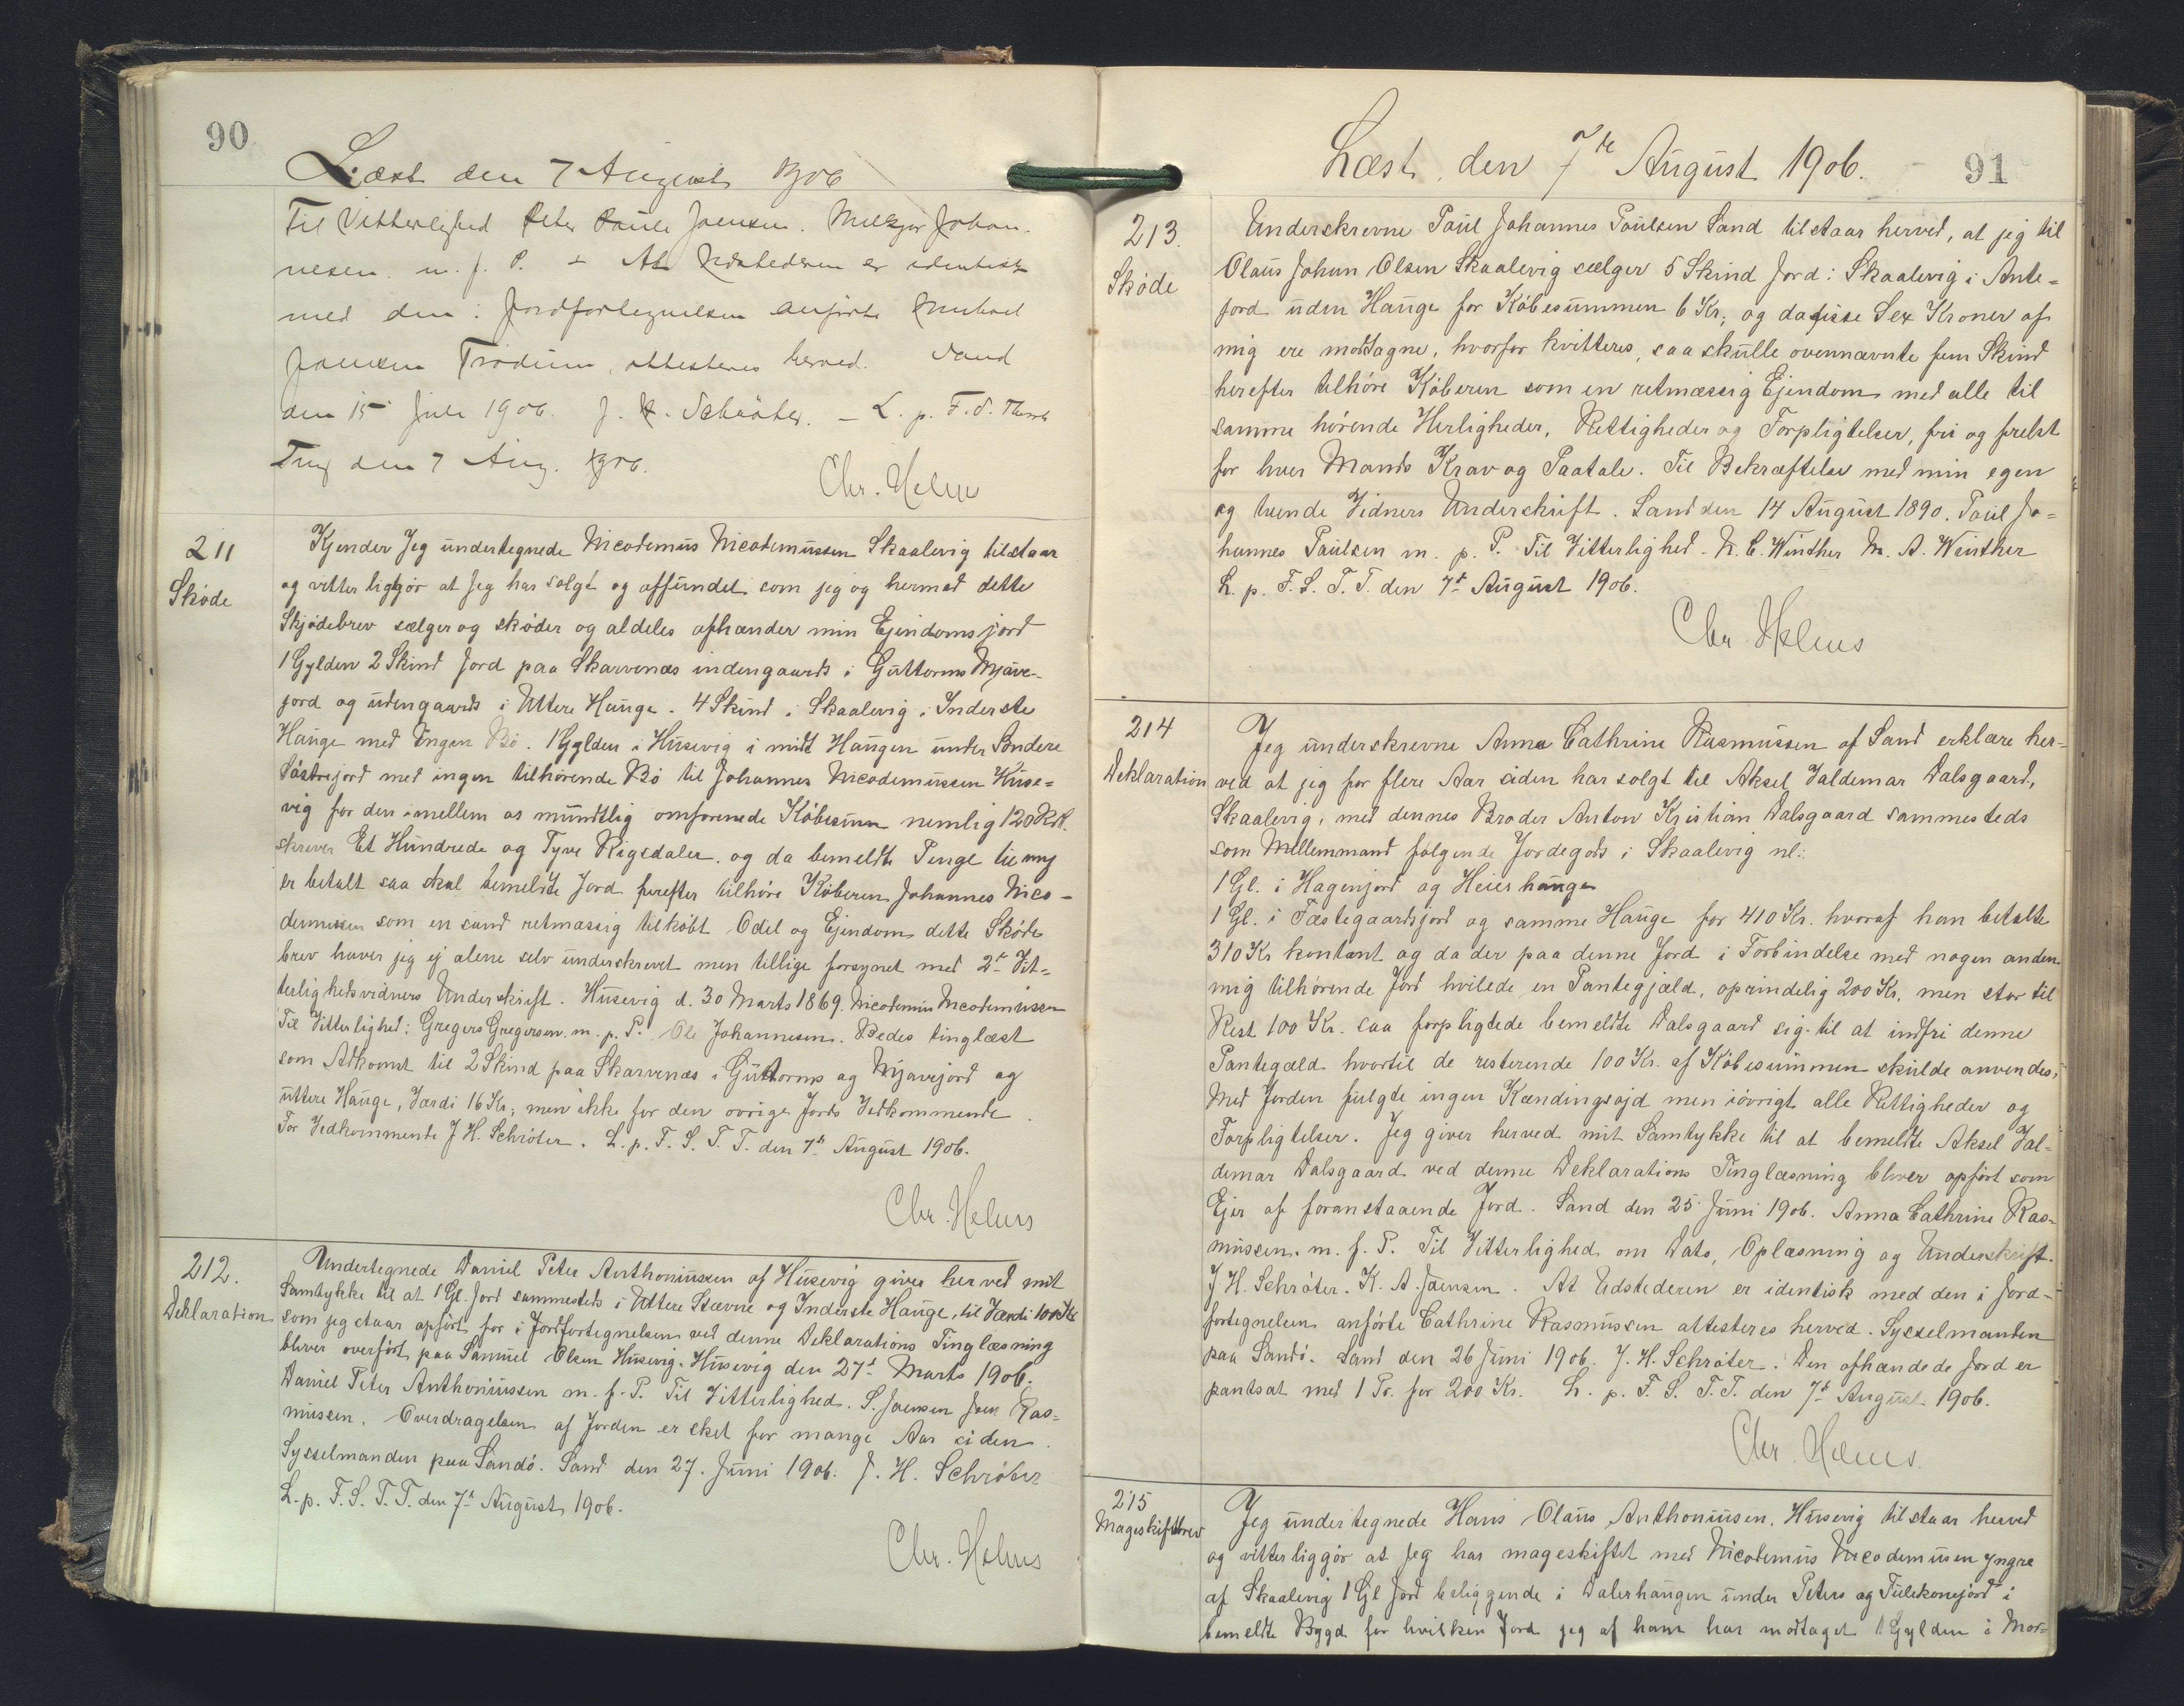 90
Læst den 7 August 1906
Til Vitterlighed Peter Poule Joensen. Melkjor Johan-
nesen. m. f. P. - At Udstederen er identisk
med den i Jordfortegnelsen anførte
Joensen Trødum, attesteres herved. Sand
den 15 Juli 1906. J. H. Schrøter. - L. p. F. S. Thorsh
Ting den 7 Aug. 1906.
Chr. Helms
211
Skøde
Kjender Jeg undertegnede Nicodemus Nicodemussen Skaalevig tilstaar
og vitterliggjør at Jeg har solgt og affundet som jeg og hermed dette
Skjødebrev sælger og skøder og aldeles afhænder min Ejendomsjord
1 Gylden 2 Skind Jord paa Skarvenæs indengaards i Guttorms Mjave-
jord og udengaards i Uttere Hauge. 4 Skind i Skaalevig i Inderste
Hauge med Ingen Bø. 1 Gylden i Husevig i midt Haugen under Søndere
Søstrejord med ingen tilhørende Bø til Johannes Nicodemussen Huse=
vig for den imellem os mundtlig omforenede Købesum nemlig 120 Rd.
skriver Et Hundrede og Tyve Rigsdaler. og da bemeldte Penge til mig
er betalt saa skal bemeldte Jord herefter tilhøre Køberen Johannes Nico-
demussen som en sand retmæssig tilkøbt Odel og Ejendom dette Skøde
brev haver jeg ej alene selv underskrevet men tillige forsynet med 2de Vit=
terlighedsvidners Underskrift. Husevig d. 30 Marts 1869. Nicodemus Nicodemussen
Til Vitterlighed: Gregers Gregersen. m. p. P. Ole Johannesen. Bedes tinglæst
som Adkomst til 2 Skind paa Skarvenæs i Guttorms og Mjavejord og
uttere Hauge, Værdi 16 Kr; men ikke for den øvrige Jords Vedkommende.
For Vedkommende J H. Schrøter. L. p. F. S. T. T. den 7de August 1906.
Chr. Helms
212.
Deklaration
Undertegnede Daniel Peter Anthoniussen af Husevig giver herved mit
Samtykke til at 1 Gl. Jord sammesteds i Uttere Stævne og Inderste Hauge, til Værdi 100 Kr
som jeg staar opført for i Jordfortegnelsen ved denne Deklarations Tinglæsning
bliver overført paa Samuel Olsen Husevig. Husevig den 27de Marts 1906.
Daniel Peter Anthoniussen m. f. P. Til Vitterlighed. S. Joensen Joen Ras=
mussen. Overdragelsen af Jorden er sket for mange Aar siden.
Sysselmanden paa Sandø. Sand den 27. Juni 1906. J. H. Schrøter
L. p. F. S. T. T. den 7de August 1906.
Chr. Helms
Læst den 7de August 1906.
91
213.
Skøde
Underskrevne Poul Johannes Poulsen Sand tilstaar herved, at jeg til
Olaus Johan Olsen Skaalevig sælger 5 Skind Jord i Skaalevig i Ante=
jord uden Hauge for Købesummen 6 Kr; og da disse Sex Kroner af
mig ere modtagne, hvorfor kvitteres, saa skulle ovennævnte fem Skind
herefter tilhøre Køberen som en retmæssig Ejendom med alle til
samme hørende Herligheder, Rettigheder og Forpligtelser, fri og frelst
for hver Mands Krav og Paatale. Til Bekræftelse med min egen
og tvende Vidners Underskrift. Sand den 14 August 1890. Poul Jo=
hannes Poulsen m. p. P. Til Vitterlighed. N. C. Winther M. A. Winther
L. p. F. S. T. T. den 7de August 1906.
Chr. Helms
214
Deklaration
Jeg underskrevne Anna Cathrine Rasmussen af Sand erklære her=
ved at jeg for flere Aar siden har solgt til Aksel Valdemar Dalsgaard,
Skaalevig, med dennes Broder Anton Kristian Dalsgaard sammesteds
som Mellemmand følgende Jordegods i Skaalevig nl:
1 Gl. i Hagenjord og Heierhauge
1 Gl. i Fæstegaardsjord og samme Hauge for 410 Kr. hvoraf han betalte
310 Kr kontant og da der paa denne Jord i Forbindelse med nogen anden
mig tilhørende Jord hvilede en Pantegjæld, oprindelig 200 Kr, men stor til
Rest 100 Kr. saa forpligtede bemeldte Dalsgaard sig til at indfri denne
Pantegæld hvortil de resterende 100 Kr. af Købesummen skulde anvendes.
Med Jorden fulgte ingen Kændingsojd men iøvrigt alle Rettigheder og
Forpligtelser. Jeg giver herved mit Samtykke til at bemeldte Aksel Val=
demar Dalsgaard ved denne Deklarations Tinglæsning bliver opført som
Ejer af foranstaaende Jord. Sand den 25 Juni 1906. Anna Cathrine Ras=
mussen. m. f. P. Til Vitterlighed om Dato, Oplæsning og Underskrift.
J H. Schrøter. K. A. Joensen. At Udstederen er identisk med den i Jord-
fortegnelsen anførte Cathrine Rasmussen attesteres herved. Sysselmanden
paa Sandø. Sand den 26 Juni 1906. J. H. Schrøter. Den afhændede Jord er
pantsat med 1 Pr. for 200 Kr. L. p. F. S. T. T. den 7de August 1906.
Chr. Helms.
215
Mageskiftbrev
Jeg undertegnede Hans Olaus Anthoniusen, Husevig tilstaar herved
og vitterliggjør at Jeg har mageskiftet med Nicodemus Nicodemusen yngre
af Skaalevig 1 Gl Jord beliggende i Dalerhaugen under Peters og Tulekonejord i
bemeldte Bygd for hvilken Jord jeg af ham har modtaget 1 Gylden i Mor=